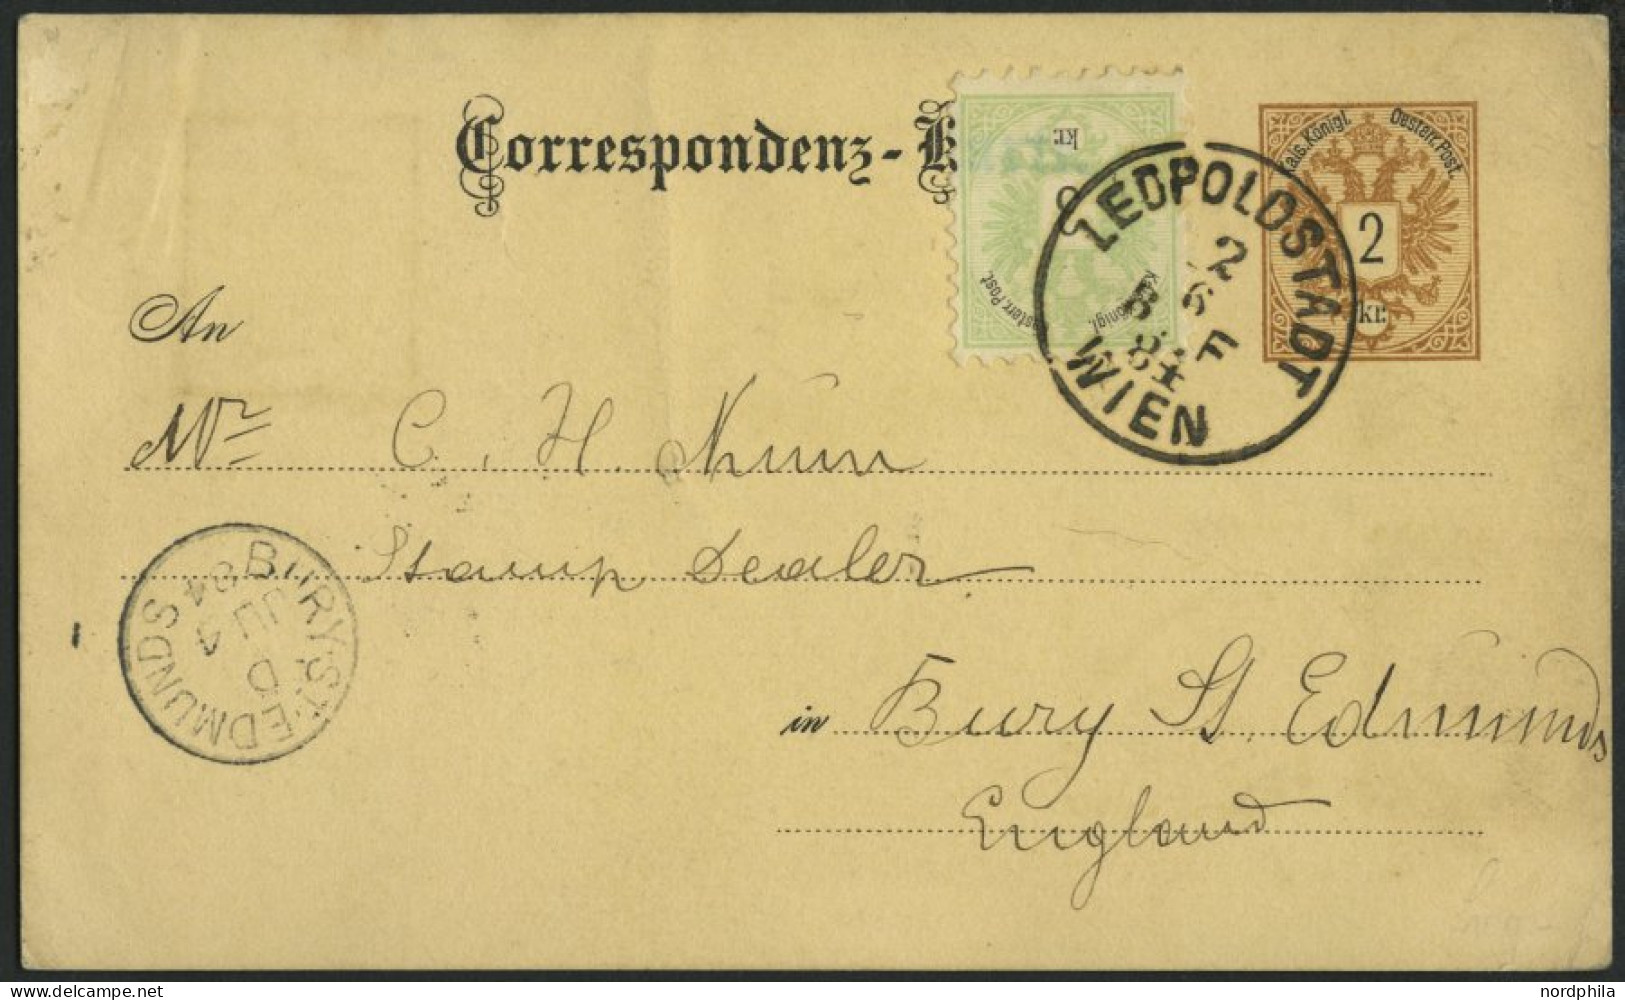 Correspondenz-K
Kais. Königl. Oesterr. Post.
2
kr.
kr.
Post.
LEOPOLDSTADT
2
6
84 F
WIEN
An
Mr C. H. Nunn
Stamp Dealer
in Bury St. Edmunds
England
BURY·ST·EDMUNDS
D
JU 4
84
www.delcampe.net
nordphila